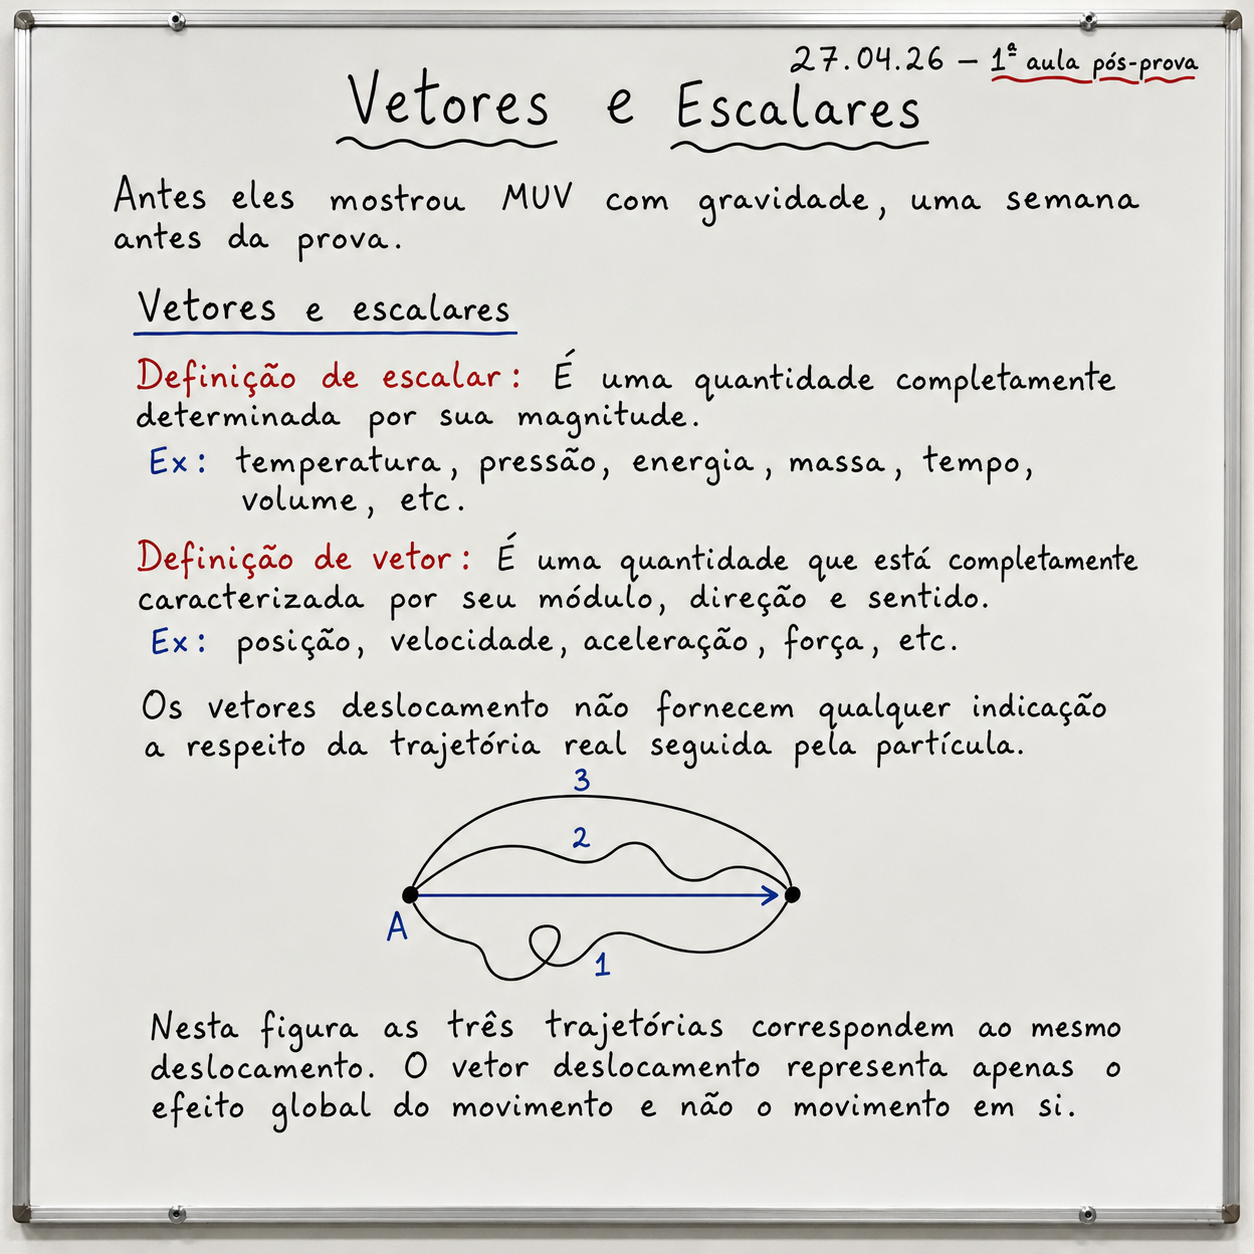 27.04.26 – 1ª aula pós-prova
Vetores e Escalares
Antes eles mostrou MUV com gravidade, uma semana
antes da prova.
Vetores e escalares
Definição de escalar: É uma quantidade completamente
determinada por sua magnitude.
Ex: temperatura, pressão, energia, massa, tempo,
volume, etc.
Definição de vetor: É uma quantidade que está completamente
caracterizada por seu módulo, direção e sentido.
Ex: posição, velocidade, aceleração, força, etc.
Os vetores deslocamento não fornecem qualquer indicação
a respeito da trajetória real seguida pela partícula.
3
2
A
1
Nesta figura as três trajetórias correspondem ao mesmo
deslocamento. O vetor deslocamento representa apenas o
efeito global do movimento e não o movimento em si.